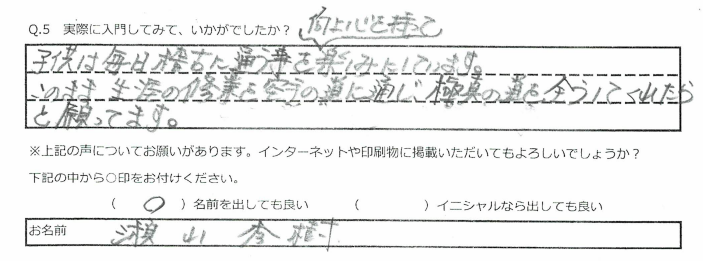 Q.5 実際に入門してみて、いかがでしたか?
向上心を持って
子供は毎日稽古に通う事を楽しみにしています。
このまま生涯の修業を空手の道に通じ、極真の道を全うしてくれたら
と願ってます。
※上記の声についてお願いがあります。インターネットや印刷物に掲載いただいてもよろしいでしょうか?
下記の中から○印をお付けください。
( ○ )名前を出しても良い ( )イニシャルなら出しても良い
お名前 瀬山 杏樹